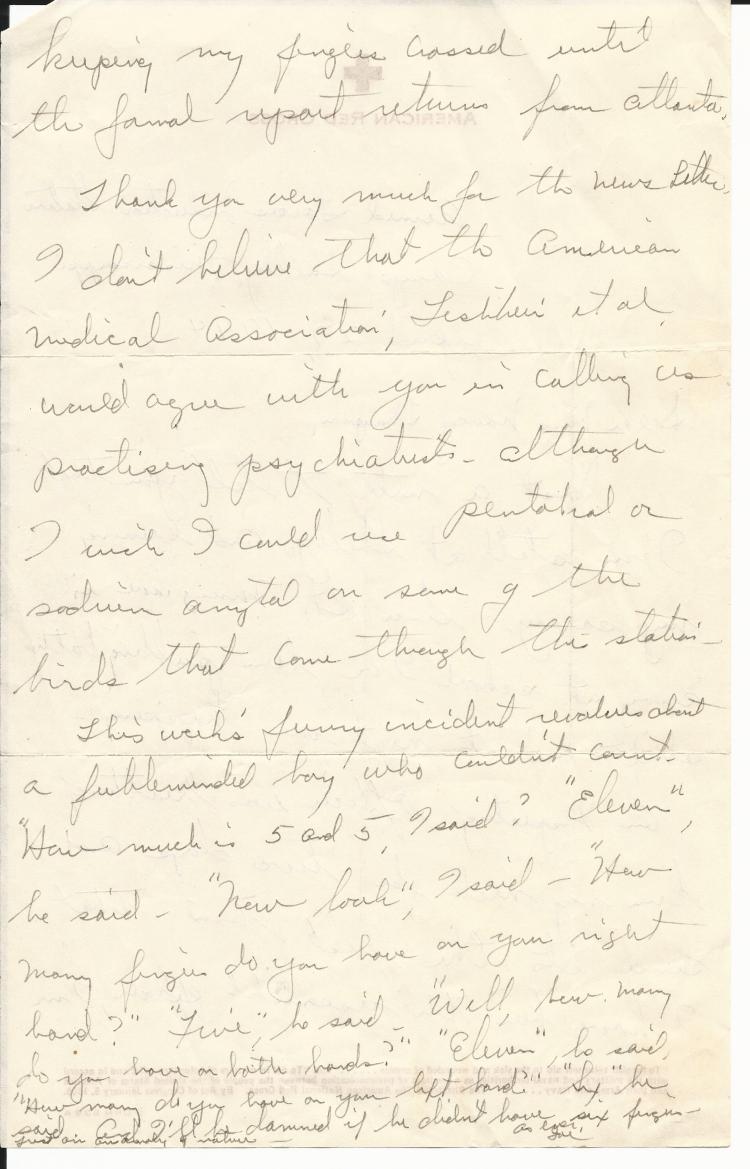 keeping my fingers crossed until
the formal report returns from Atlanta.
Thank you very much for the News Letter.
I don't believe that the American
Medical Association, et al,
would agree with you in calling us
practising psychiatrists - although
I wish I could use pentothal or
sodium amytal on some of the
birds that come through this station -
This week's funny incident revolves about
a feebleminded boy who couldn't count -
"How much is 5 and 5, I said? "Eleven",
he said - "Now look", I said - "How
many fingers do you have on your right
hand?" "Five", he said - "Well, how many
do you have on both hands?" "Eleven", he said,
"How many do you have on your left hand?" "Six" he
said. And I'll be damned if he didn't have six fingers -
Just an anomaly of nature -
As ever,
AMERICAN RED CROSS